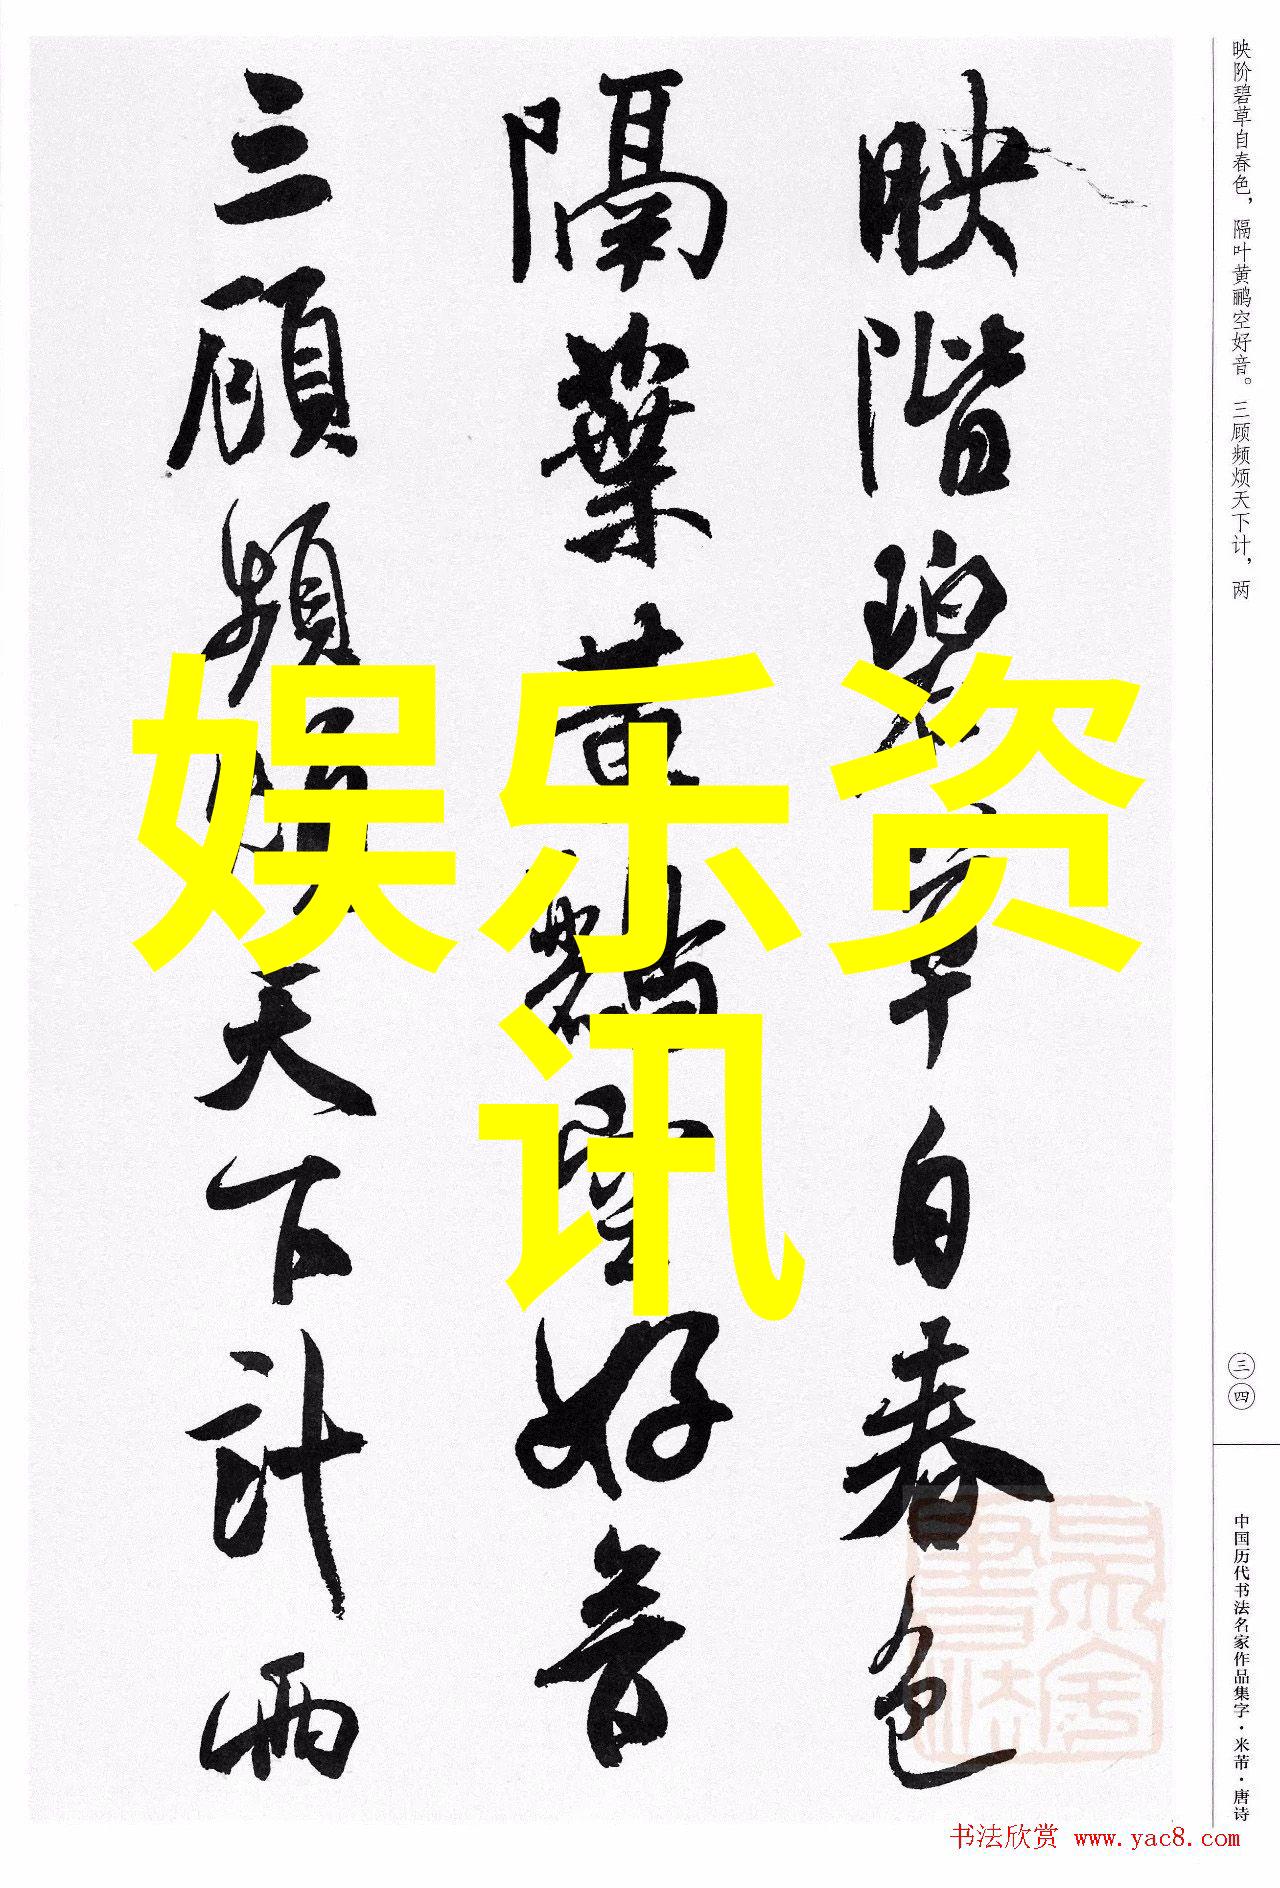 映阶碧草自春色，隔叶黄鹂空好音。三顾频烦天下计，两
映階碧草自春色
隔葉黄鸝空好音
三顧頻煩天下計兩
娱乐资
讯
三四
中国历代书法名家作品集字·米芾·唐诗
书法欣赏 www.yac8.com